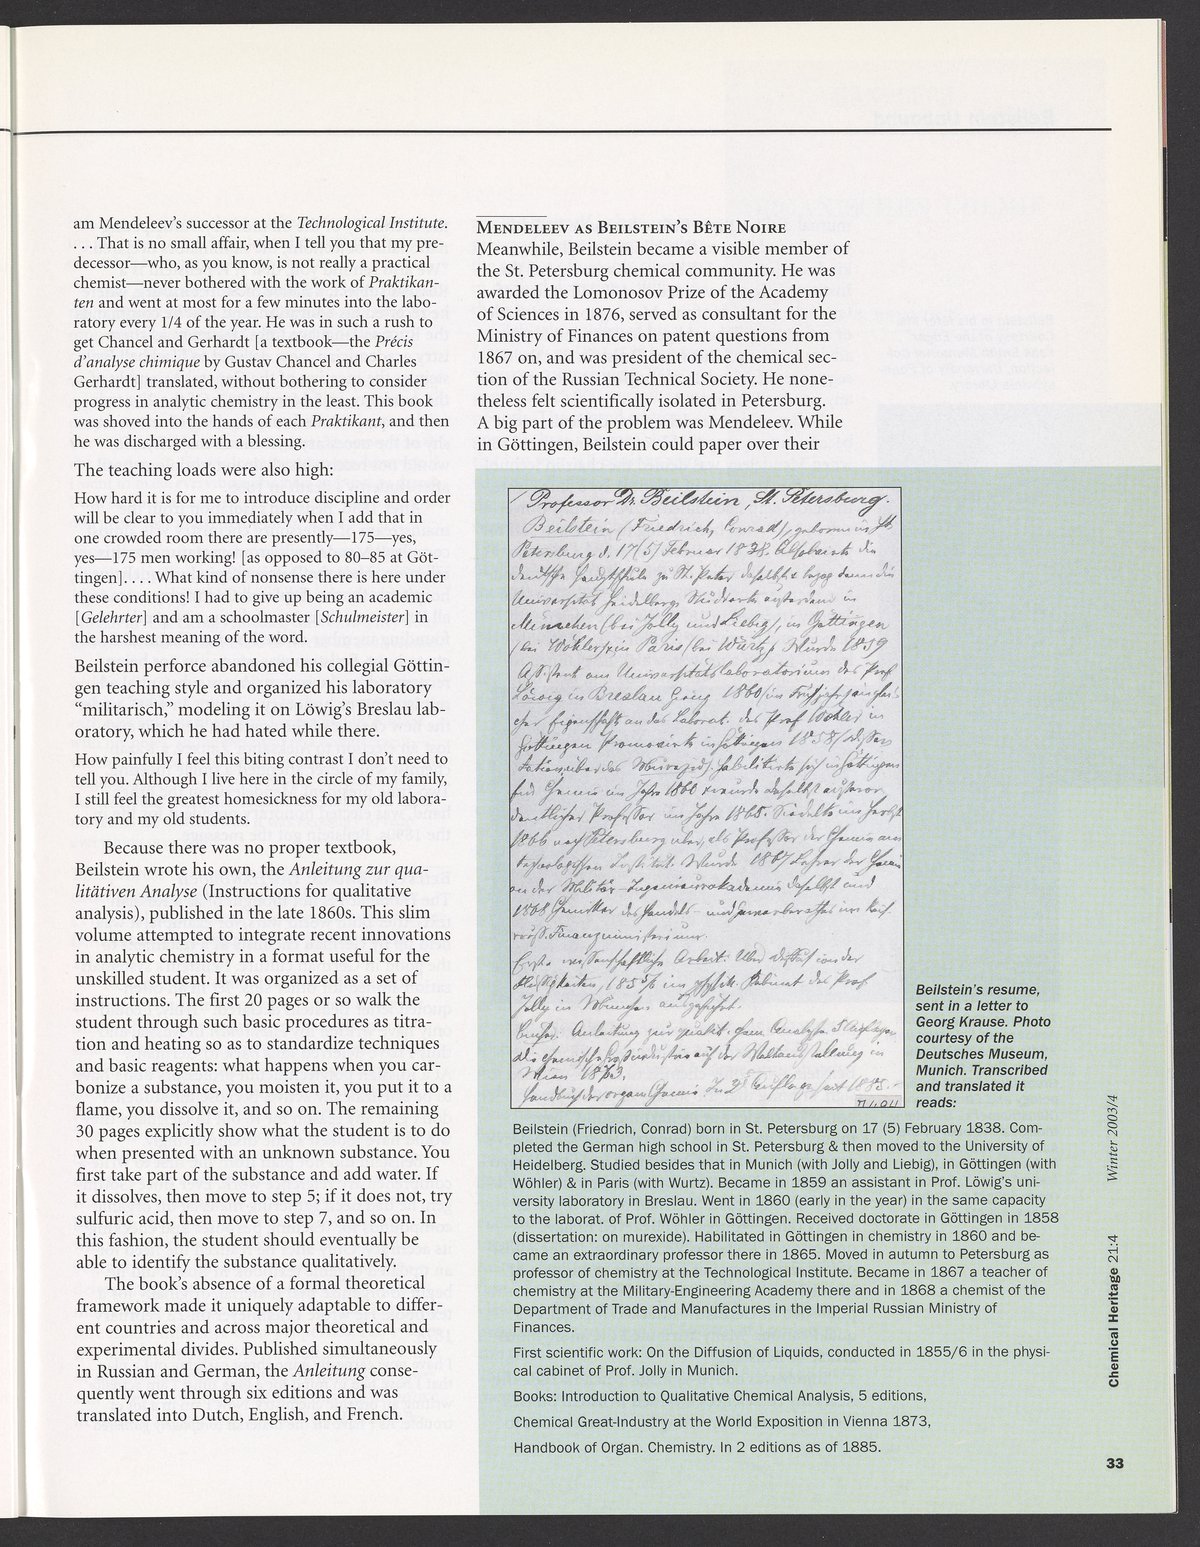 am Mendeleev’s successor at the Technological Institute.
. . . That is no small affair, when I tell you that my pre-
decessor—who, as you know, is not really a practical
chemist—never bothered with the work of Praktikan-
ten and went at most for a few minutes into the labo-
ratory every 1/4 of the year. He was in such a rush to
get Chancel and Gerhardt [a textbook—the Précis
d’analyse chimique by Gustav Chancel and Charles
Gerhardt] translated, without bothering to consider
progress in analytic chemistry in the least. This book
was shoved into the hands of each Praktikant, and then
he was discharged with a blessing.
The teaching loads were also high:
How hard it is for me to introduce discipline and order
will be clear to you immediately when I add that in
one crowded room there are presently—175—yes,
yes—175 men working! [as opposed to 80–85 at Göt-
tingen]. . . . What kind of nonsense there is here under
these conditions! I had to give up being an academic
[Gelehrter] and am a schoolmaster [Schulmeister] in
the harshest meaning of the word.
Beilstein perforce abandoned his collegial Göttin-
gen teaching style and organized his laboratory
“militarisch,” modeling it on Löwig’s Breslau lab-
oratory, which he had hated while there.
How painfully I feel this biting contrast I don’t need to
tell you. Although I live here in the circle of my family,
I still feel the greatest homesickness for my old labora-
tory and my old students.
Because there was no proper textbook,
Beilstein wrote his own, the Anleitung zur qua-
litätiven Analyse (Instructions for qualitative
analysis), published in the late 1860s. This slim
volume attempted to integrate recent innovations
in analytic chemistry in a format useful for the
unskilled student. It was organized as a set of
instructions. The first 20 pages or so walk the
student through such basic procedures as titra-
tion and heating so as to standardize techniques
and basic reagents: what happens when you car-
bonize a substance, you moisten it, you put it to a
flame, you dissolve it, and so on. The remaining
30 pages explicitly show what the student is to do
when presented with an unknown substance. You
first take part of the substance and add water. If
it dissolves, then move to step 5; if it does not, try
sulfuric acid, then move to step 7, and so on. In
this fashion, the student should eventually be
able to identify the substance qualitatively.
The book’s absence of a formal theoretical
framework made it uniquely adaptable to differ-
ent countries and across major theoretical and
experimental divides. Published simultaneously
in Russian and German, the Anleitung conse-
quently went through six editions and was
translated into Dutch, English, and French.
Mendeleev as Beilstein’s Bête Noire
Meanwhile, Beilstein became a visible member of
the St. Petersburg chemical community. He was
awarded the Lomonosov Prize of the Academy
of Sciences in 1876, served as consultant for the
Ministry of Finances on patent questions from
1867 on, and was president of the chemical sec-
tion of the Russian Technical Society. He none-
theless felt scientifically isolated in Petersburg.
A big part of the problem was Mendeleev. While
in Göttingen, Beilstein could paper over their
Professor Dr. Beilstein, St. Petersburg.
Beilstein (Friedrich, Conrad), geboren in St.
Petersburg d. 17(5) Februar 1838. Absolvirte die
deutsche Hauptschule zu St. Petri daselbst & bezog dann die
Universität Heidelberg. Studierte ausserdem in
München (bei Jolly und Liebig), in Göttingen
(bei Wöhler) & in Paris (bei Wurtz). Wurde 1859
Assistent am Universitätslaboratorium des Prof.
Löwig in Breslau. Ging 1860 (im Frühjahr) in
Eigenschaft an das Laborat. des Prof. Wöhler in
Göttingen. Promovirte in Göttingen 1858
im Jahre 1860 & wurde daselbst ausseror-
dentlicher Professor im Jahre 1865. Siedelte im Herbst
1866 nach Petersburg über, als Professor der Chemie am
technologischen Institut. Wurde 1867 Lehrer der Chemie
an der Militär-Ingenieurakademie daselbst und
1868 Chemiker des Handels- und
russ. Finanzministerium.
Erste wissenschaftliche Arbeit: Über
Flüssigkeiten, 1855/6 im Kabinet des Prof.
Jolly in München ausgeführt.
Bücher: Anleitung zur qualit. chem. Analyse. 5 Auflagen
der Weltausstellung in
Wien 1873.
Handbuch der organ. Chemie. In 2 Auflage seit 1885.
Beilstein’s resume,
sent in a letter to
Georg Krause. Photo
courtesy of the
Deutsches Museum,
Munich. Transcribed
and translated it
reads:
Beilstein (Friedrich, Conrad) born in St. Petersburg on 17 (5) February 1838. Com-
pleted the German high school in St. Petersburg & then moved to the University of
Heidelberg. Studied besides that in Munich (with Jolly and Liebig), in Göttingen (with
Wöhler) & in Paris (with Wurtz). Became in 1859 an assistant in Prof. Löwig’s uni-
versity laboratory in Breslau. Went in 1860 (early in the year) in the same capacity
to the laborat. of Prof. Wöhler in Göttingen. Received doctorate in Göttingen in 1858
(dissertation: on murexide). Habilitated in Göttingen in chemistry in 1860 and be-
came an extraordinary professor there in 1865. Moved in autumn to Petersburg as
professor of chemistry at the Technological Institute. Became in 1867 a teacher of
chemistry at the Military-Engineering Academy there and in 1868 a chemist of the
Department of Trade and Manufactures in the Imperial Russian Ministry of
Finances.
First scientific work: On the Diffusion of Liquids, conducted in 1855/6 in the physi-
cal cabinet of Prof. Jolly in Munich.
Books: Introduction to Qualitative Chemical Analysis, 5 editions,
Chemical Great-Industry at the World Exposition in Vienna 1873,
Handbook of Organ. Chemistry. In 2 editions as of 1885.
Chemical Heritage 21:4 Winter 2003/4
33